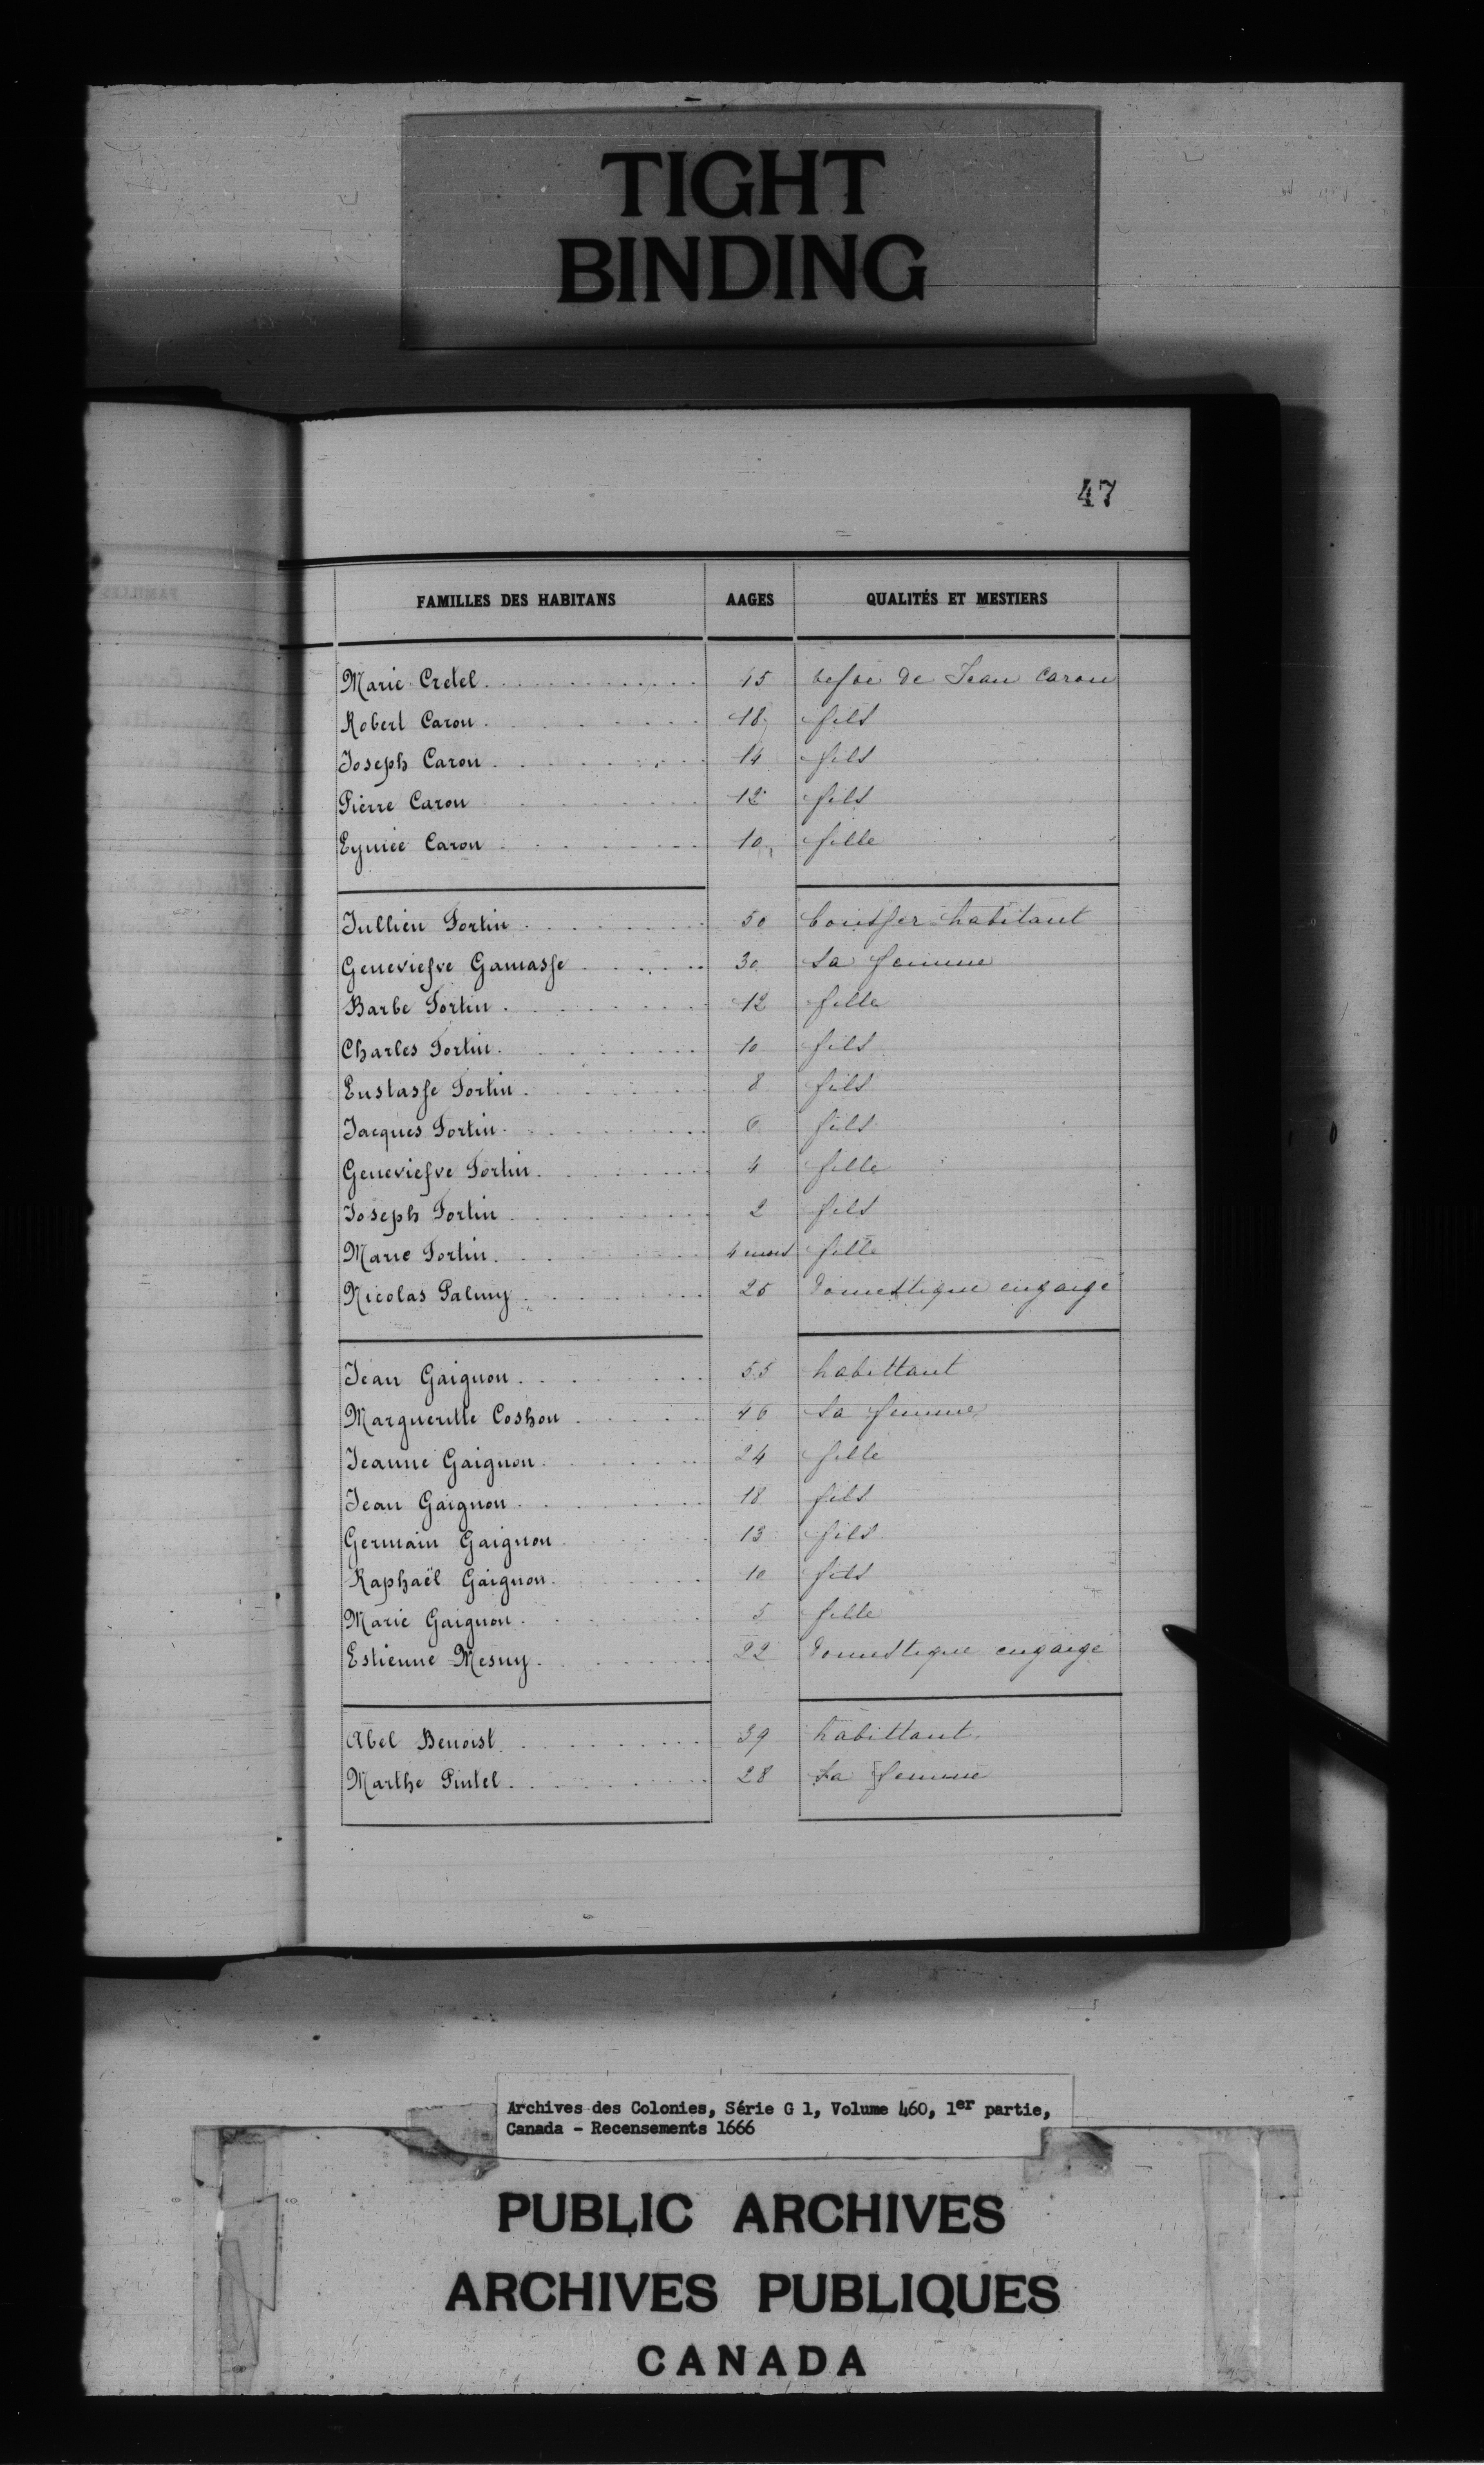 TIGHT
BINDING
47
FAMILLES DES HABITANS AAGES QUALITÉS ET MESTIERS
Marie Cretel 45 vefve de Jean Caron
Robert Caron 18 fils
Joseph Caron 14 fils
Pierre Caron 12 fils
Eymée Caron 10 fille
Jullien Fortin 50 habitant
Geneviefve Gamasse 30 sa femme
Barbe Fortin 12 fille
Charles Fortin 10 fils
Eustasse Fortin 8 fils
Jacques Fortin 6 fils
Geneviefve Fortin 4 fille
Joseph Fortin 2 fils
Marie Fortin 4 mois fille
Nicolas Palmy 25 domestique engaigé
Jean Gaignon 55 habittant
Margueritte Coshon 46 sa femme
Jeanne Gaignon 24 fille
Jean Gaignon 18 fils
Germain Gaignon 13 fils
Raphaël Gaignon 10 fils
Marie Gaignon 5 fille
Estienne Mesny 22 domestique engaigé
Abel Benoist 39 habittant
Marthe Pintel 28 sa femme
Archives des Colonies, Série G 1, Volume 460, 1er partie,
Canada - Recensements 1666
PUBLIC ARCHIVES
ARCHIVES PUBLIQUES
CANADA